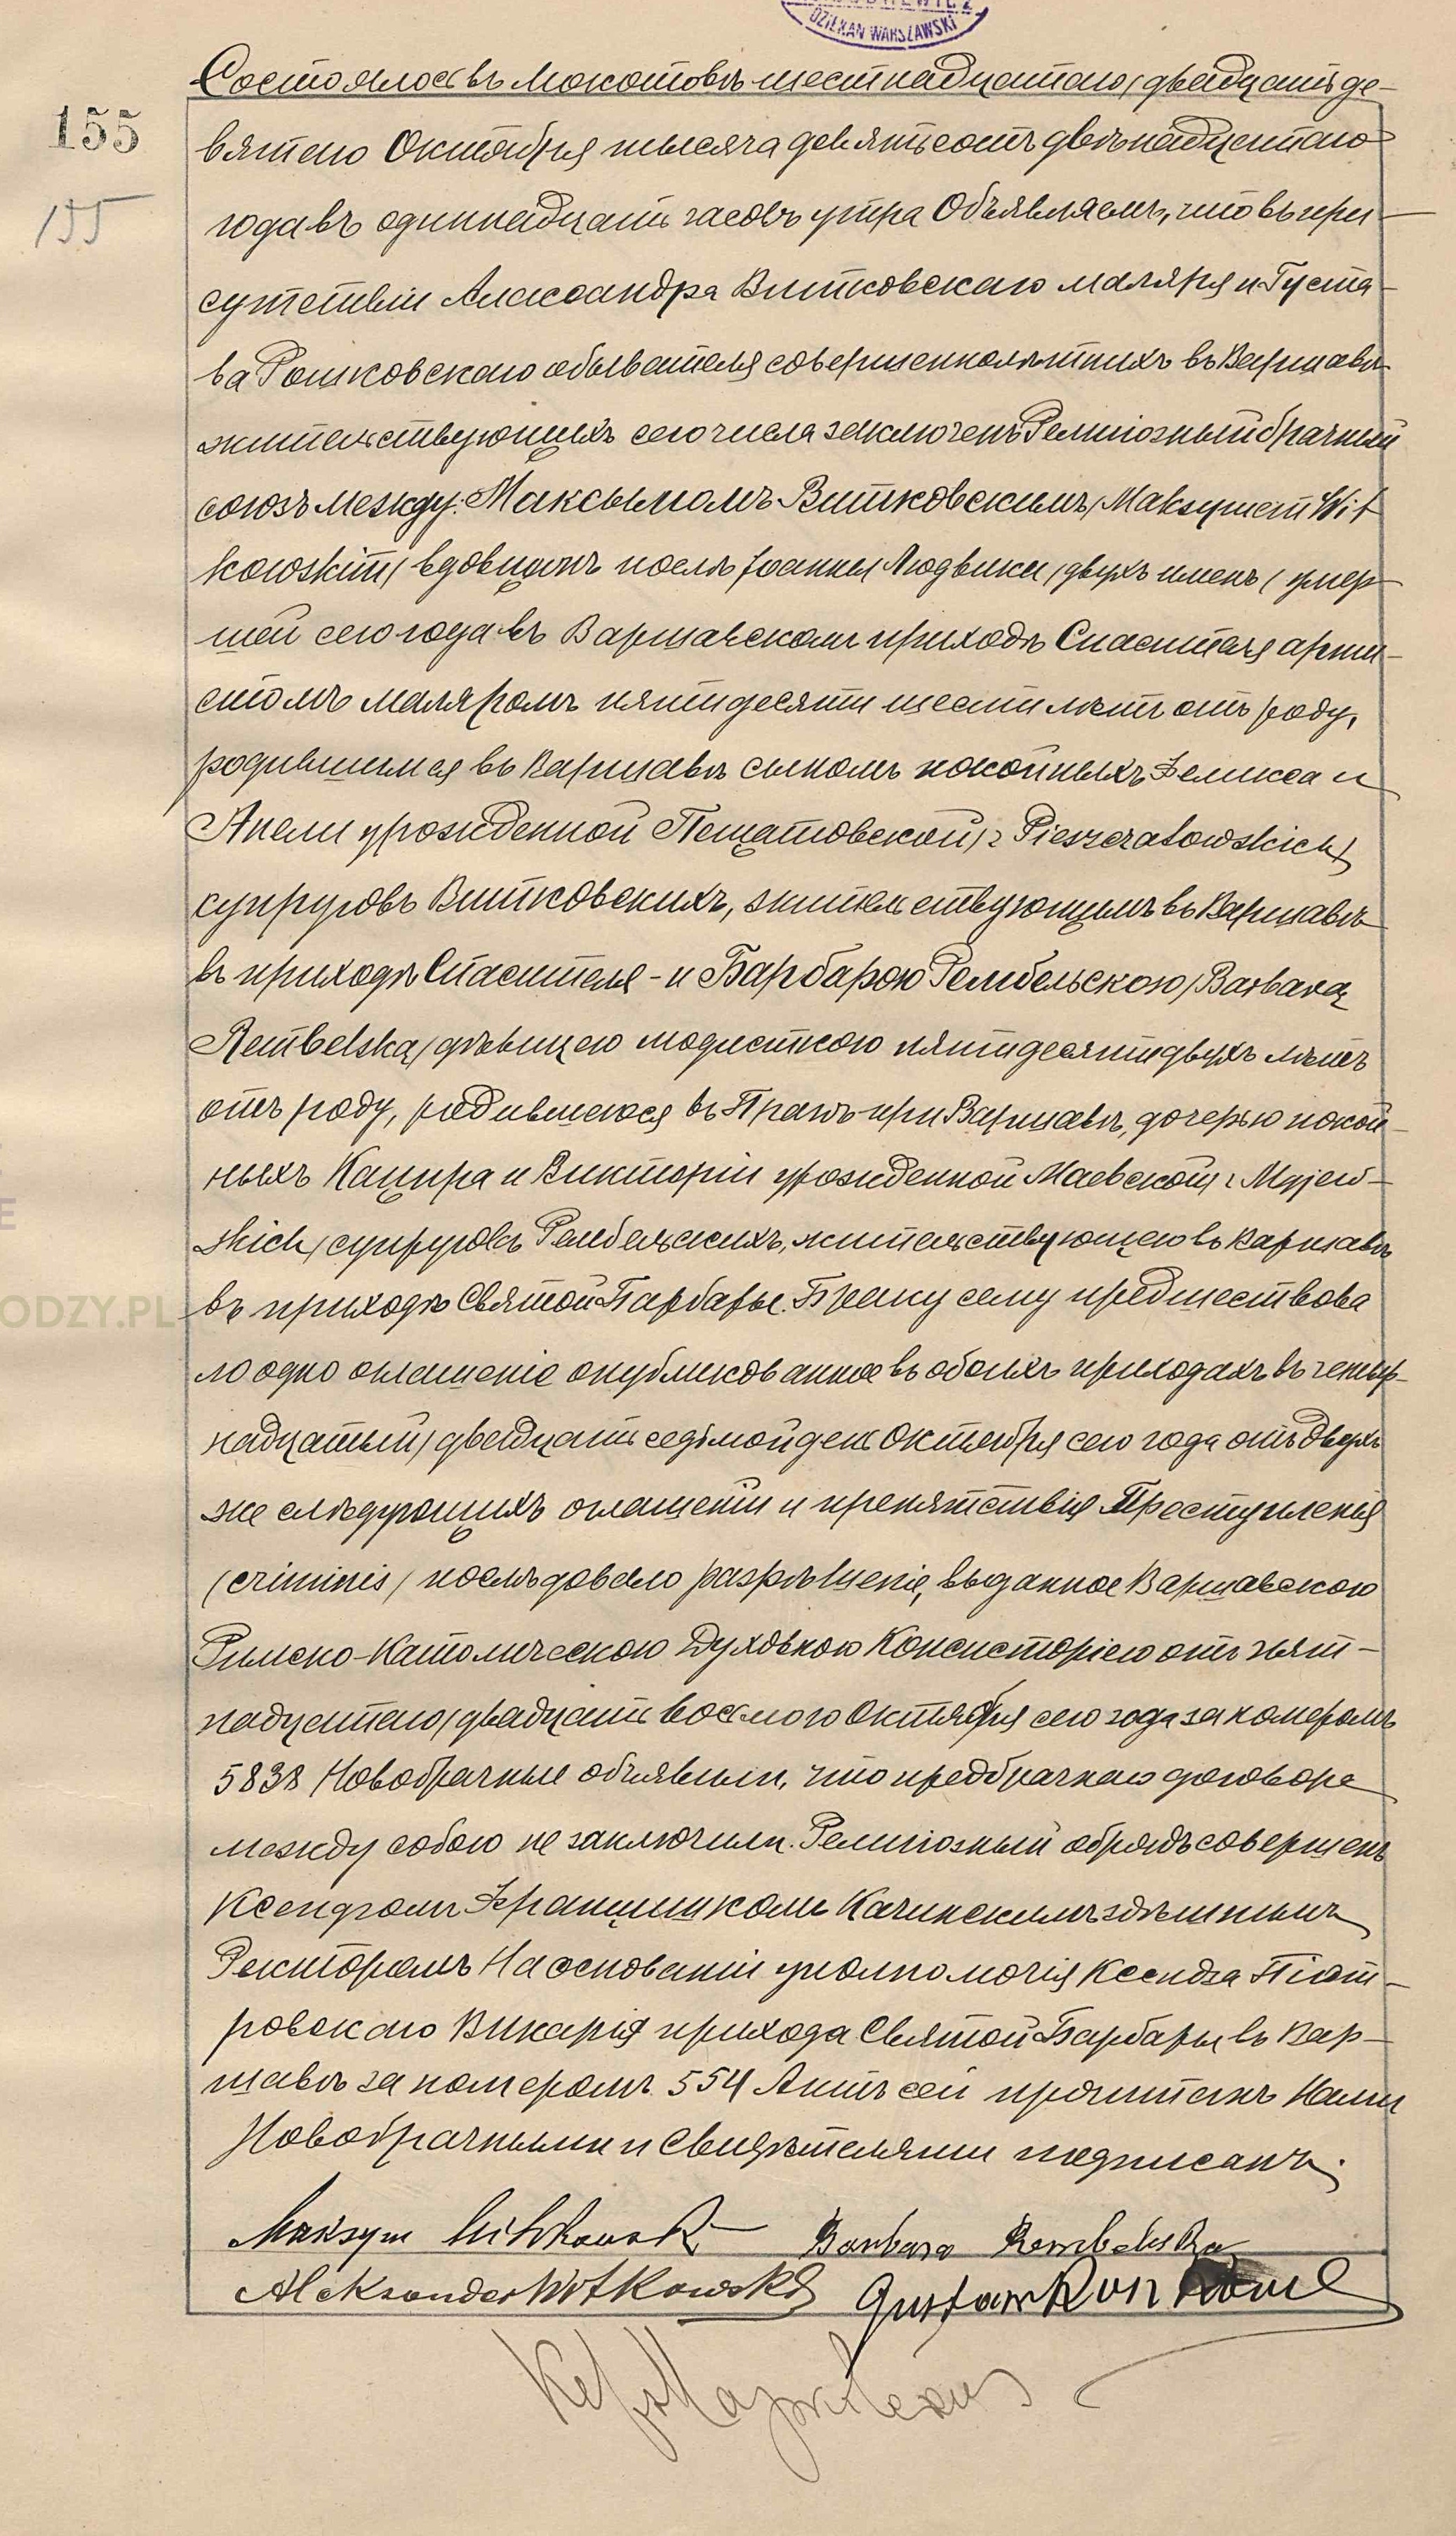 DZIEKAN WARSZAWSKI
Состоялось въ Мокотовѣ шестнадцатаго / двадцать де-
155
вятаго Октября тысяча девятьсотъ двѣнадцатаго
155
года въ одиннадцать часовъ утра Объявляемъ, что въ при-
сутствіи Александра Витковскаго маляря и Густа-
ва Рошковскаго обывателя совершеннолѣтнихъ въ Варшавѣ
жительствующихъ сего числа заключенъ Религіозный брачный
союзъ между: Максымомъ Витковскимъ / Maksymem Wit
kowskim / вдовцомъ послѣ Іоанны Людвики / двухъ именъ / умер-
шей сего года въ Варшавскомъ приходѣ Спасителя арти-
стомъ маляромъ пятидесяти шести лѣтъ отъ роду,
родившимся въ Варшавѣ сыномъ покойныхъ Феликса и
Анели урожденной Пещатовской / z Pieszczatowskich /
супруговъ Витковскихъ, жительствующимъ въ Варшавѣ
въ приходѣ Спасителя - и Барбарою Рембельскою / Barbarą
Rembelską / дѣвицею модисткою пятидесяти двухъ лѣтъ
отъ роду, родившеюся въ Прагѣ при Варшавѣ, дочерью покой-
ныхъ Кацпра и Викторіи урожденной Маевской / z Majew-
skich / супруговъ Рембельскихъ, жительствующею въ Варшавѣ
въ приходѣ Святой Барбары. Браку сему предшествова
ло одно оглашеніе опубликованное въ обоихъ приходахъ въ четыр-
надцатый / двадцать седьмой день Октября сего года отъ двухъ
же слѣдующихъ оглашеній и препятствія Преступленія
/ criminis / послѣдовало разрѣшеніе, выданное Варшавскою
Римско-Католическою Духовною Консисторіею отъ пят-
надцатаго / двадцать восьмого Октября сего года за номеромъ
5838 Новобрачные объявили, что предбрачнаго договора
между собою не заключили. Религіозный обрядъ совершенъ
Ксендзомъ Францишкомъ Качинскимъ здѣшнимъ
Ректоромъ На основаніи уполномочія Ксендза Піот-
ровскаго Викарія прихода Святой Барбары въ Вар-
шавѣ за номеромъ 554 Актъ сей прочитанъ Нами
Новобрачными и Свидѣтелями подписанъ.
Maksym Witkowski Barbara Rembelska
Aleksander Witkowski Gustaw